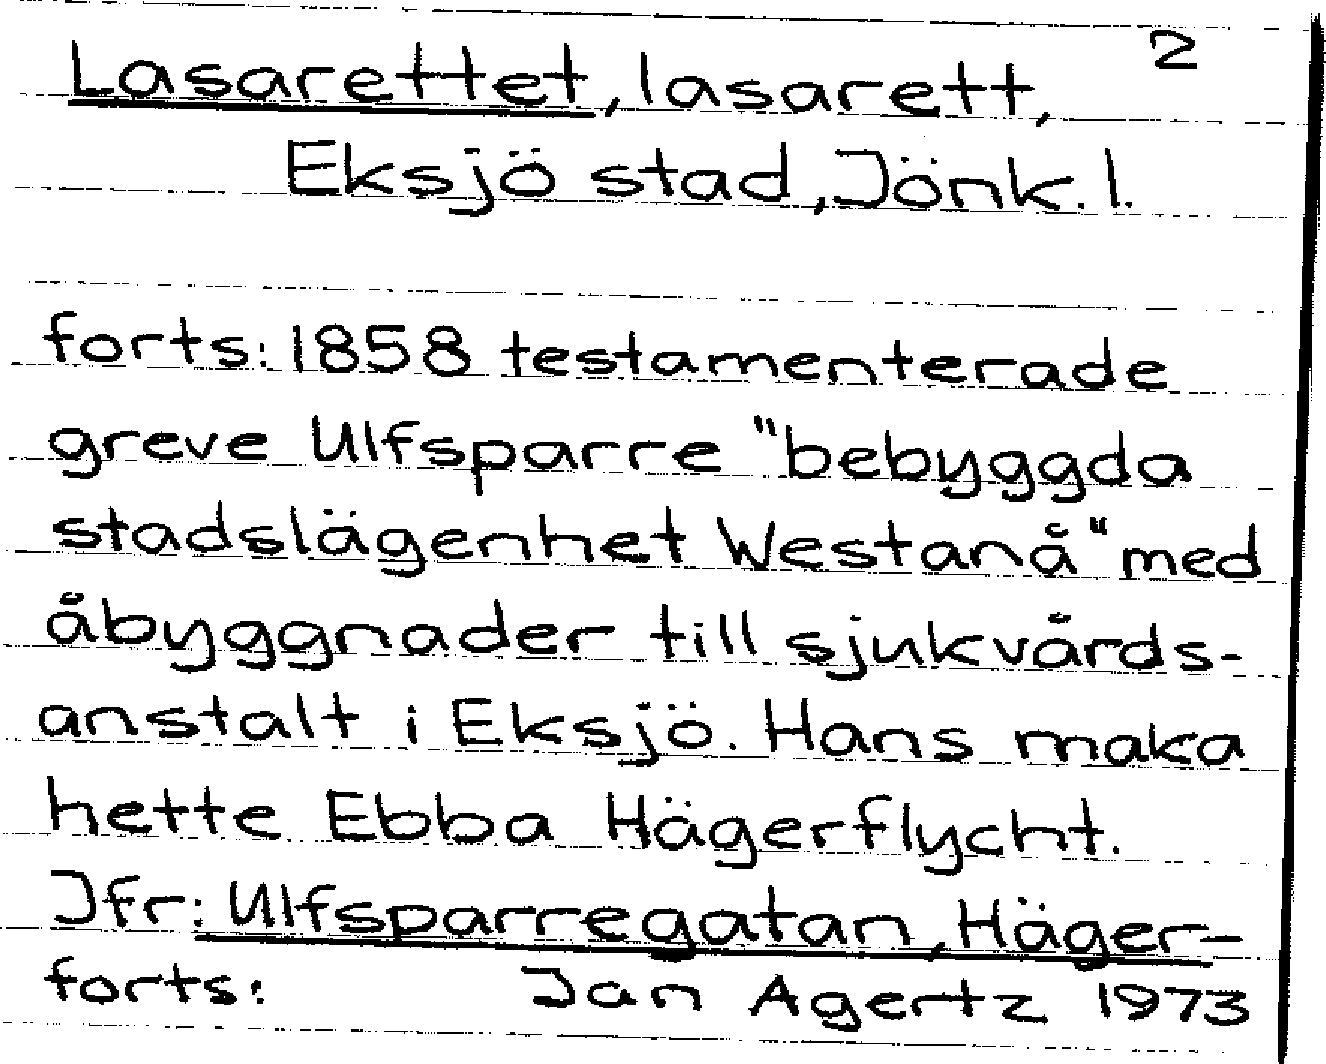 2
Lasarettet, lasarett,
Eksjö stad, Jönk. l.
forts: 1858 testamenterade
greve Ulfsparre "bebyggda
stadslägenhet Westanå" med
åbyggnader till sjukvårds-
anstalt i Eksjö. Hans maka
hette Ebba Hägerflycht.
Jfr: Ulfsparregatan, Häger-
forts: Jan Agertz 1973